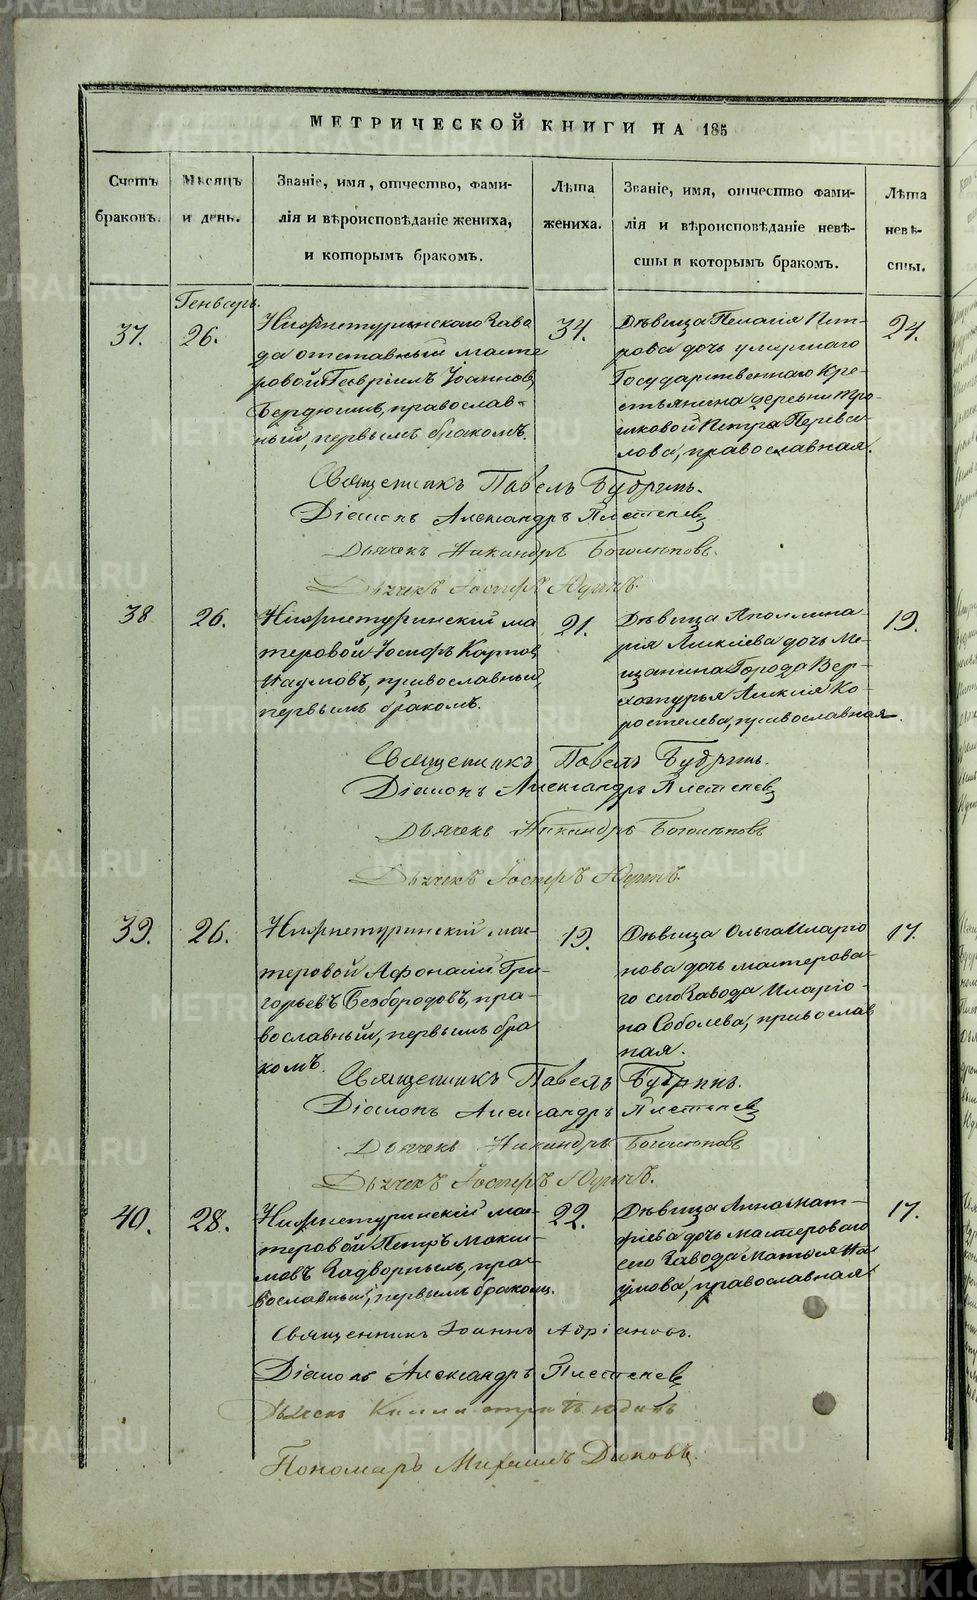 МЕТРИЧЕСКОЙ КНИГИ НА 185
Счетъ браковъ.
Мѣсяцъ и день.
Званіе, имя, отчество, фами-
лія и вѣроисповѣданіе жениха,
и которымъ бракомъ.
Лѣта жениха.
Званіе, имя, отчество фами-
лія и вѣроисповѣданіе невѣ-
сты и которымъ бракомъ.
Лѣта невѣ-
сты.
Генварь.
37.
26.
Нижнетуринскаго Заво
да отставный масте
ровой Гавріилъ Іоанновъ
Бердюгинъ, православ-
ный, первымъ бракомъ.
34.
Дѣвица Пелагія Пет-
рова дочь умершаго
Государственнаго Кре-
стьянина деревни
Петра Перева-
лова, православная.
24.
Священникъ Павелъ Бубринъ.
Діаконъ Александръ Плетеневъ
Дьячекъ Никандръ Боголеповъ.
Дьячекъ
38
26.
Нижнетуринскій ма
теровой Іосифъ Карповъ
Наумовъ, православный,
первымъ бракомъ.
21.
Дѣвица Аполлина-
рія Алексіева дочь Ме-
щанина Города Вер-
хотурья Алексія Ко-
ростелева, православная.
19.
Священникъ Павелъ Бубринъ.
Діаконъ Александръ Плетеневъ
Дьячекъ Никандръ Боголеповъ
Дьячекъ
39.
26.
Нижнетуринскій мас-
теровой Афонасій Гри-
горьевъ Безбородовъ, пра-
вославный, первымъ бра
комъ.
19.
Дѣвица Ольга Иларіо
нова дочь мастерова-
го сего Завода Иларіо-
на Соболева, православ
ная.
17.
Священникъ Павелъ Бубринъ.
Діаконъ Александръ Плетеневъ
Дьячекъ Никандръ Боголеповъ
Дьячекъ
40.
28.
Нижнетуринскій мас-
теровой Петръ Макси-
мовъ Задворныхъ, пра-
вославный, первымъ бракомъ.
22.
Дѣвица Анна Мат-
фіева дочь мастероваго
сего Завода Матфея На
умова, православная
17.
Священникъ Іоаннъ Адріановъ.
Діаконъ Александръ Плетеневъ
Дьячекъ
Пономарь Михаилъ Диковъ.
METRIKI.GASO-URAL.RU